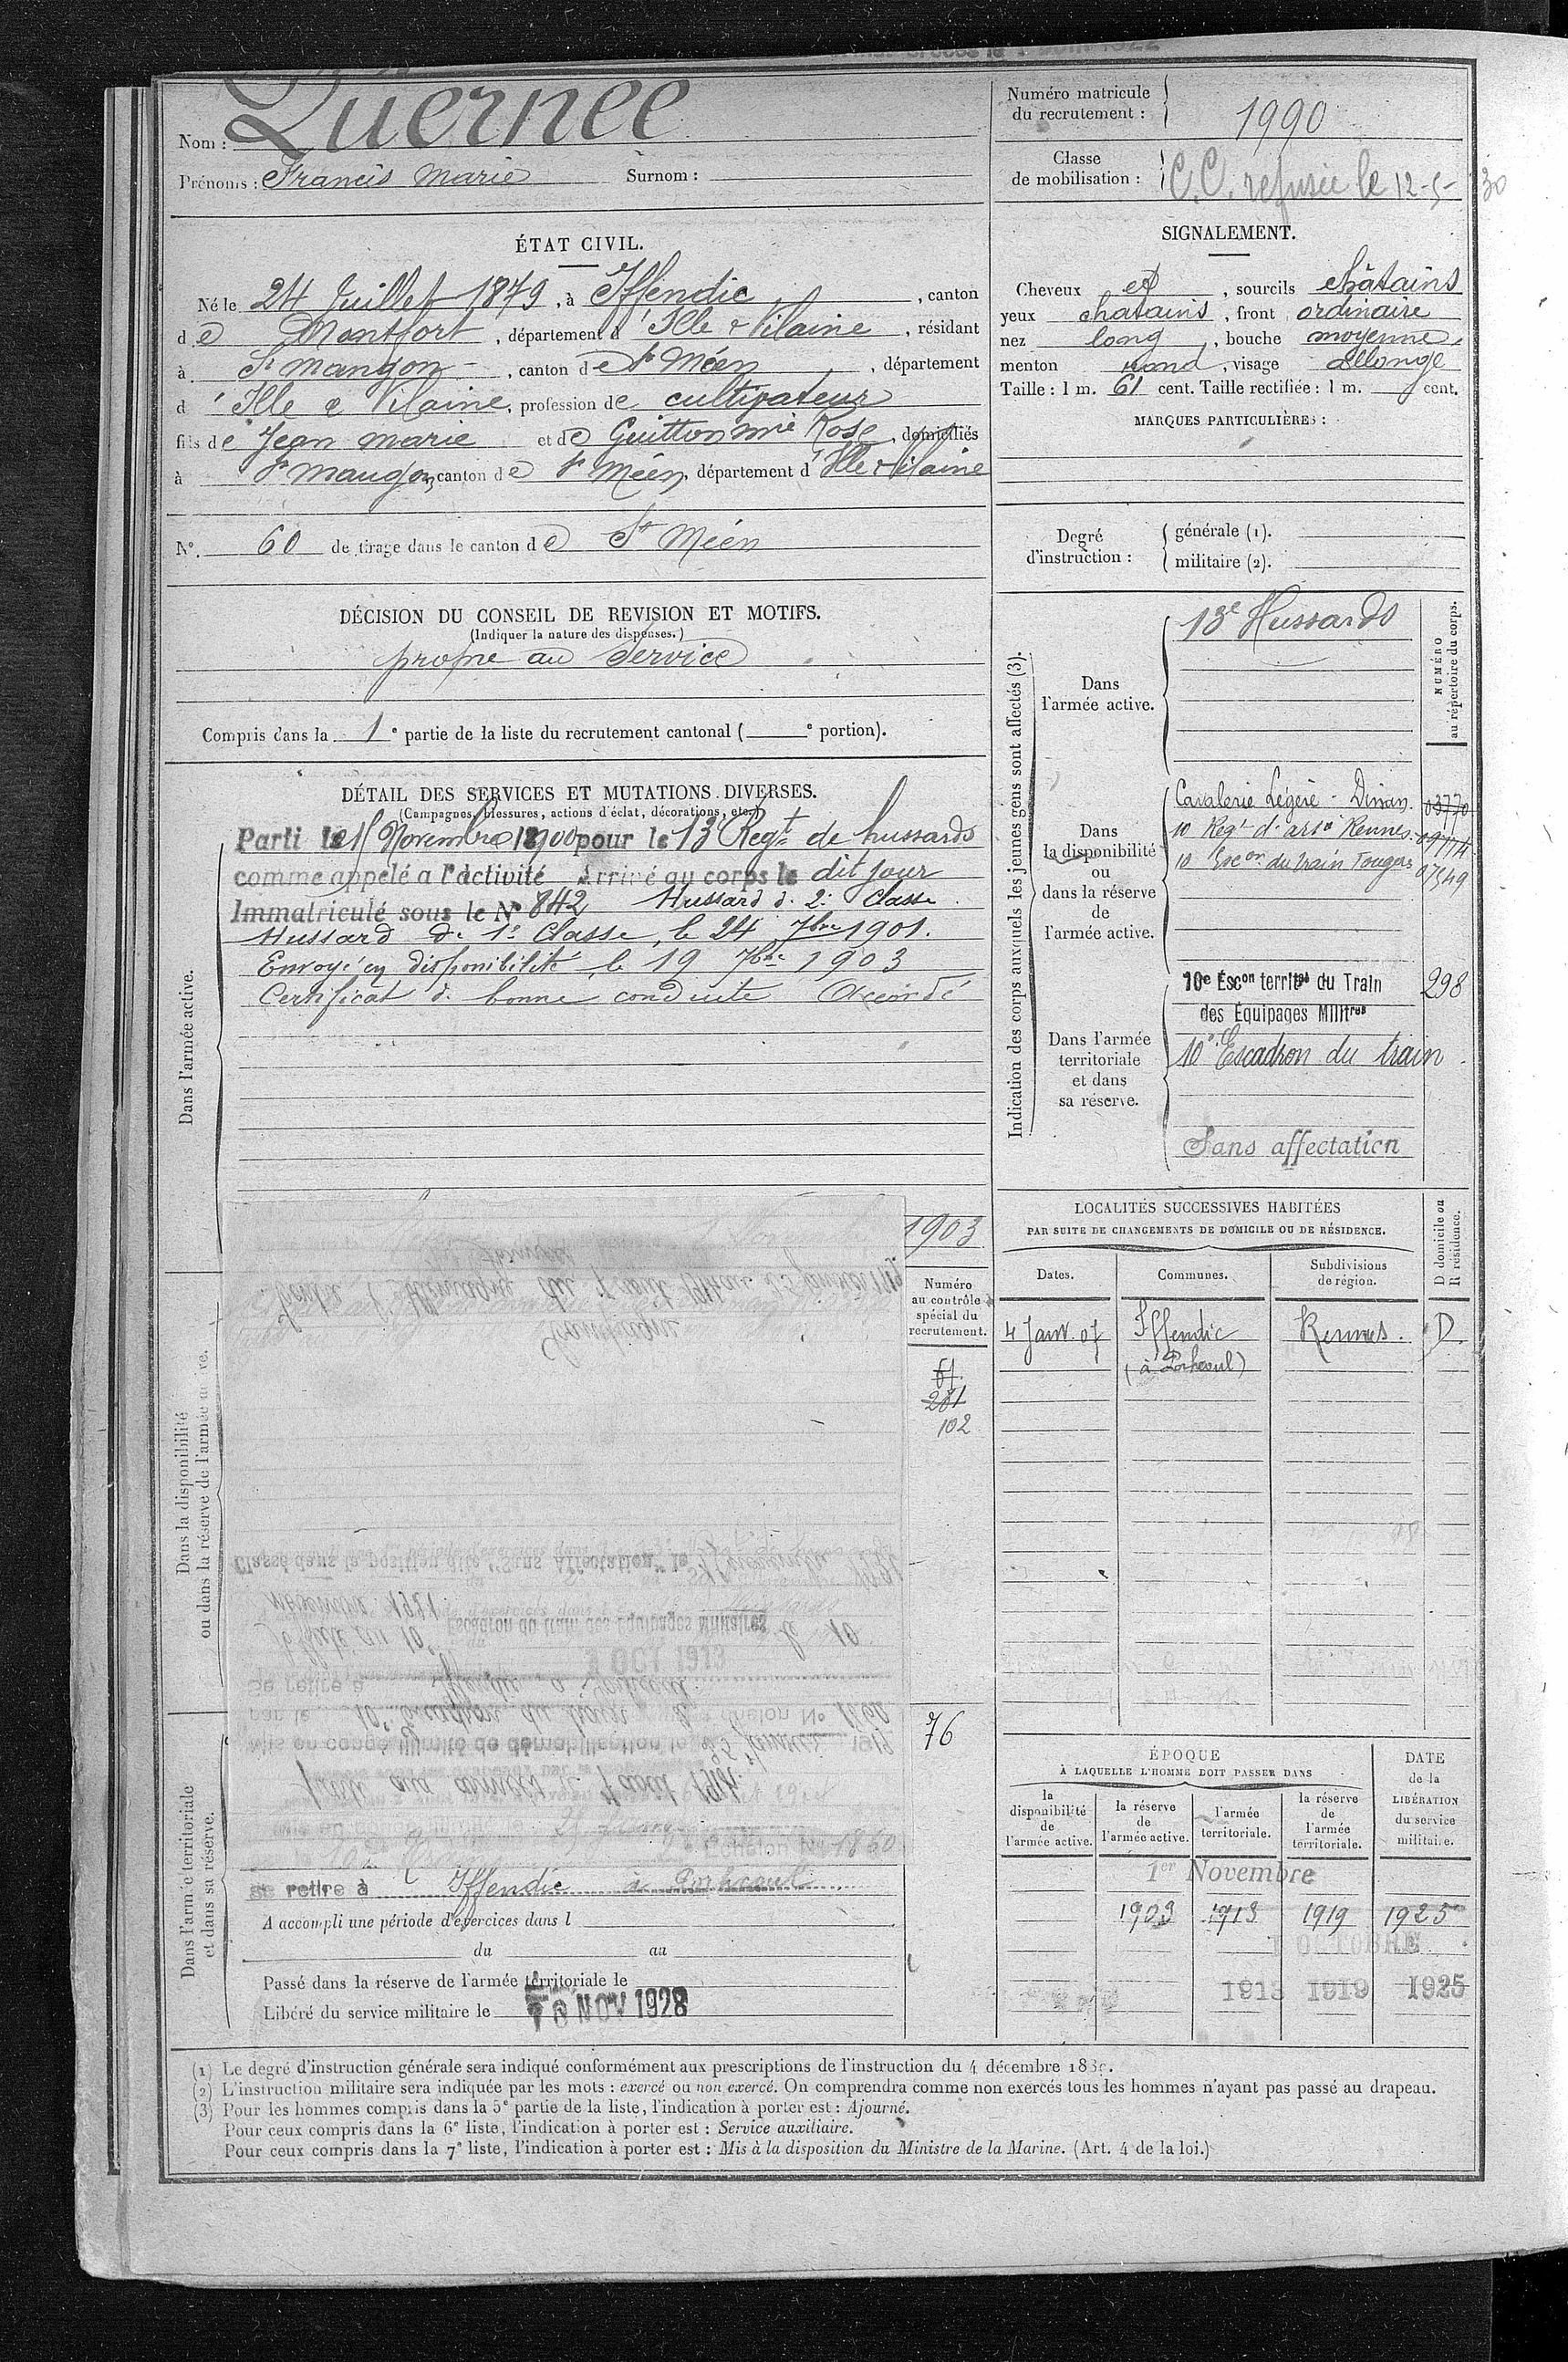 Nom : Quernee
Prénoms : Francis Marie Surnom :
Numéro matricule du recrutement : 1990
Classe de mobilisation : C.C. refusée le 12-5-30
ÉTAT CIVIL.
Né le 24 Juillet 1879, à Iffendic, canton
de Montfort, département d'Ille & Vilaine, résidant
à St Maugon, canton de St Méen, département
d'Ille & Vilaine, profession de cultivateur
fils de Jean Marie et de Guitton Mie Rose, domiciliés
à St Maugon, canton de St Méen, département d'Ille & Vilaine
N°. 60 de tirage dans le canton de St Méen
SIGNALEMENT.
Cheveux et, sourcils châtains
yeux chatains, front ordinaire
nez long, bouche moyenne,
menton rond, visage allongé
Taille : 1 m. 61 cent. Taille rectifiée : 1 m. cent.
MARQUES PARTICULIÈRES :
Degré d'instruction : générale (1).
militaire (2).
DÉCISION DU CONSEIL DE REVISION ET MOTIFS.
(Indiquer la nature des dispenses.)
propre au service
Compris dans la 1e partie de la liste du recrutement cantonal ( e portion).
DÉTAIL DES SERVICES ET MUTATIONS DIVERSES.
(Campagnes, blessures, actions d'éclat, décorations, etc.)
Dans l'armée active.
Parti le 15 Novembre 1900 pour le 13 Regt de hussards
comme appelé a l'activité Arrivé au corps le dit jour
Immatriculé sous le N° 842 Hussard d. 2e Classe.
Hussard de 1e Classe, le 24 7bre 1901.
Envoyé en disponibilité le 19 7bre 1903
Certificat de bonne conduite Accordé
1903
Dans la disponibilité ou dans la réserve de l'armée active.
Numéro au contrôle spécial du recrutement.
281
102
76
Campagne
contre l'Allemagne du 4 août 1914 au 25 janvier 1919
Classé dans la position dite "Sans Affectation" le
novembre 1921.
Affecté au 10e Escadron du train des Équipages Militaires le 10
OCT 1913
Se retire à Iffendic à
par le 10e Escadron du train échelon No 1860
Mis en congé illimité de démobilisation le 25 janvier 1919
août 1914.
Dans l'armée territoriale et dans sa réserve.
Échelon No 1860
se retire à Iffendic à Porhcoul
A accompli une période d'exercices dans l
du au
Passé dans la réserve de l'armée territoriale le
Libéré du service militaire le 10 NOV 1928
Indication des corps auxquels les jeunes gens sont affectés (3).
NUMÉRO au répertoire du corps.
Dans l'armée active.
13e Hussards
Dans la disponibilité ou dans la réserve de l'armée active.
Cavalerie Légère - Dinan. 03770
10 Regt d'artie Rennes. 09774
10 Escon du train Fougères 07549
Dans l'armée territoriale et dans sa réserve.
10e Escon territal du Train 298
des Équipages Militres
10e Escadron du train.
Sans affectation
LOCALITÉS SUCCESSIVES HABITÉES
PAR SUITE DE CHANGEMENTS DE DOMICILE OU DE RÉSIDENCE.
D domicile ou R résidence.
Dates. Communes. Subdivisions de région.
4 Janv. 07 Iffendic Rennes. D
(à Porhcoul)
ÉPOQUE
À LAQUELLE L'HOMME DOIT PASSER DANS
DATE de la LIBÉRATION du service militaire.
la disponibilité de l'armée active.
la réserve de l'armée active.
l'armée territoriale.
la réserve de l'armée territoriale.
1er Novembre
1903 1913 1919 1925
1 OCTOBRE
1913 1919 1925
(1) Le degré d'instruction générale sera indiqué conformément aux prescriptions de l'instruction du 4 décembre 1889.
(2) L'instruction militaire sera indiquée par les mots : exercé ou non exercé. On comprendra comme non exercés tous les hommes n'ayant pas passé au drapeau.
(3) Pour les hommes compris dans la 5e partie de la liste, l'indication à porter est : Ajourné.
Pour ceux compris dans la 6e liste, l'indication à porter est : Service auxiliaire.
Pour ceux compris dans la 7e liste, l'indication à porter est : Mis à la disposition du Ministre de la Marine. (Art. 4 de la loi.)